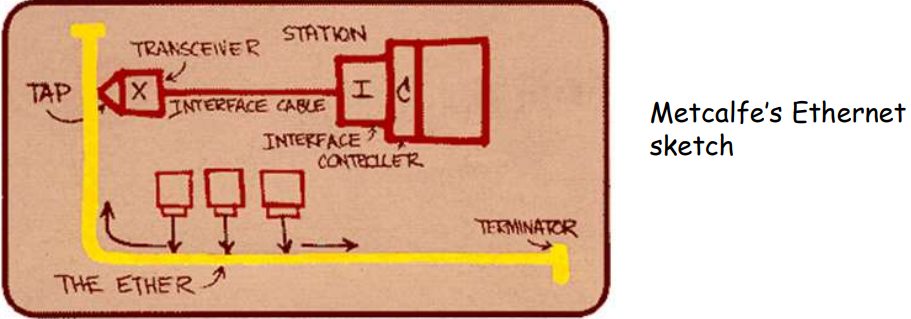 STATION
TRANSCEIVER
TAP
X
I
C
INTERFACE CABLE
INTERFACE
CONTROLLER
TERMINATOR
THE ETHER
Metcalfe's Ethernet
sketch